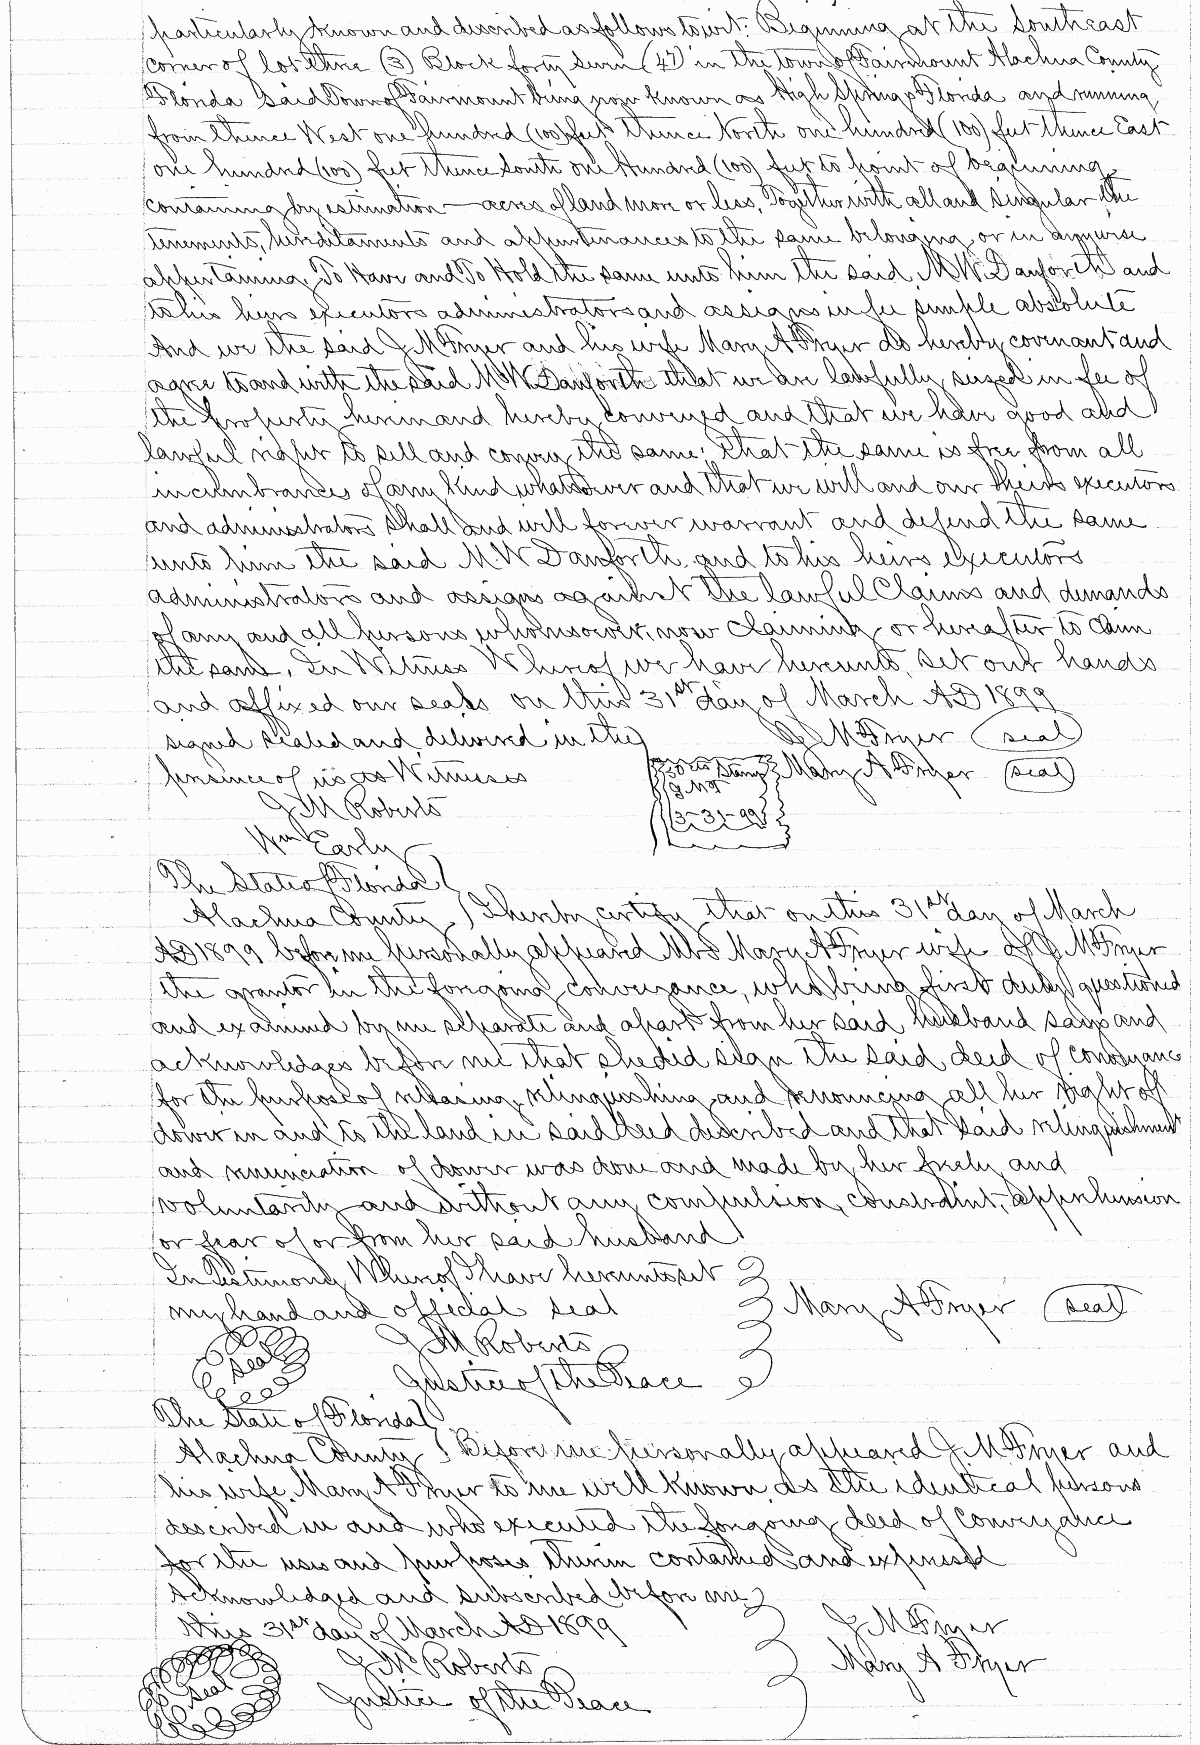 particularly known and described as follows towit: Beginning at the Southeast
corner of lot three (3) Block forty seven (47) in the town of Fairmount Alachua County
Florida Said Town of Fairmount being now known as High Springs Florida and running
from thence West one hundred (100) feet thence North one hundred (100) feet thence East
one hundred (100) feet thence South one Hundred (100) feet to point of beginning
containing by estimation — acres of land more or less, Together with all and singular the
tenements, hereditaments and appurtenances to the same belonging or in anywise
appertaining, To Have and To Hold the same unto him the said M.W. Danforth and
to his heirs executors administrators and assigns in fee simple absolute
And we the said J M Fryer and his wife Mary A Fryer do hereby covenant and
agree to and with the said M W Danforth that we are lawfully seized in fee of
the property herein and hereby conveyed and that we have good and
lawful right to sell and convey the same; that the same is free from all
incumbrances of any kind whatsoever and that we will and our heirs executors
and administrators shall and will forever warrant and defend the same
unto him the said M.W Danforth and to his heirs executors
administrators and assigns against the lawful Claims and demands
of any and all persons whomsoever, now claiming or hereafter to claim
the same. In Witness Whereof we have hereunto set our hands
and affixed our seals on this 31st day of March AD 1899
signed sealed and delivered in the J M Fryer (seal)
presence of us as Witnesses Stamp Mary A Fryer (seal)
J M Roberts 3-31-99
Wm Early
The State of Florida
Alachua County } I hereby certify that on this 31st day of March
AD 1899 before me personally appeared Mrs Mary A Fryer wife of J M Fryer
the grantor in the foregoing conveyance, who being first duly questioned
and examined by me separate and apart from her said husband says and
acknowledges before me that she did sign the said deed of conveyance
for the purpose of releasing, relinquishing and renouncing all her right of
dower in and to the land in said deed described and that said relinquishment
and renunciation of dower was done and made by her freely and
voluntarily and without any compulsion, constraint, apprehension
or fear of or from her said husband
In Testimony Whereof I have hereunto set
my hand and official seal Mary A Fryer (seal)
J M Roberts
seal Justice of the Peace
The State of Florida
Alachua County } Before me personally appeared J M Fryer and
his wife Mary A Fryer to me well known as the identical persons
described in and who executed the foregoing deed of conveyance
for the uses and purposes therein contained and expressed
Acknowledged and subscribed before me
this 31st day of March AD 1899 J M Fryer
J M Roberts Mary A Fryer
seal Justice of the Peace